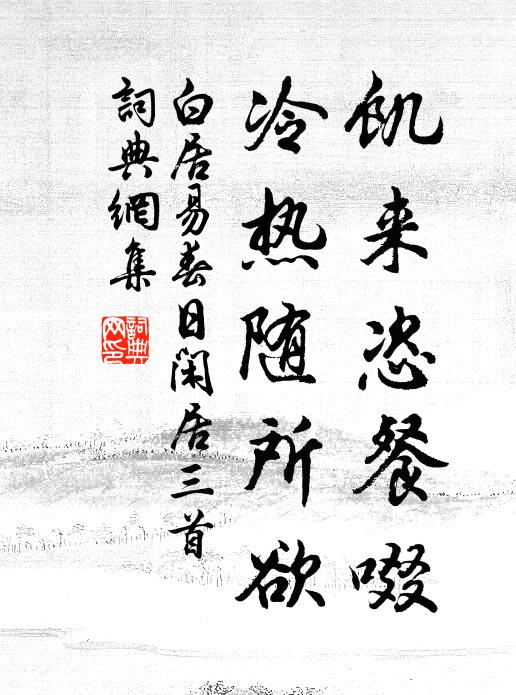 飢来恣餐啜
冷热随所欲
白居易春日闲居三首
詞典網集
詞典
网印